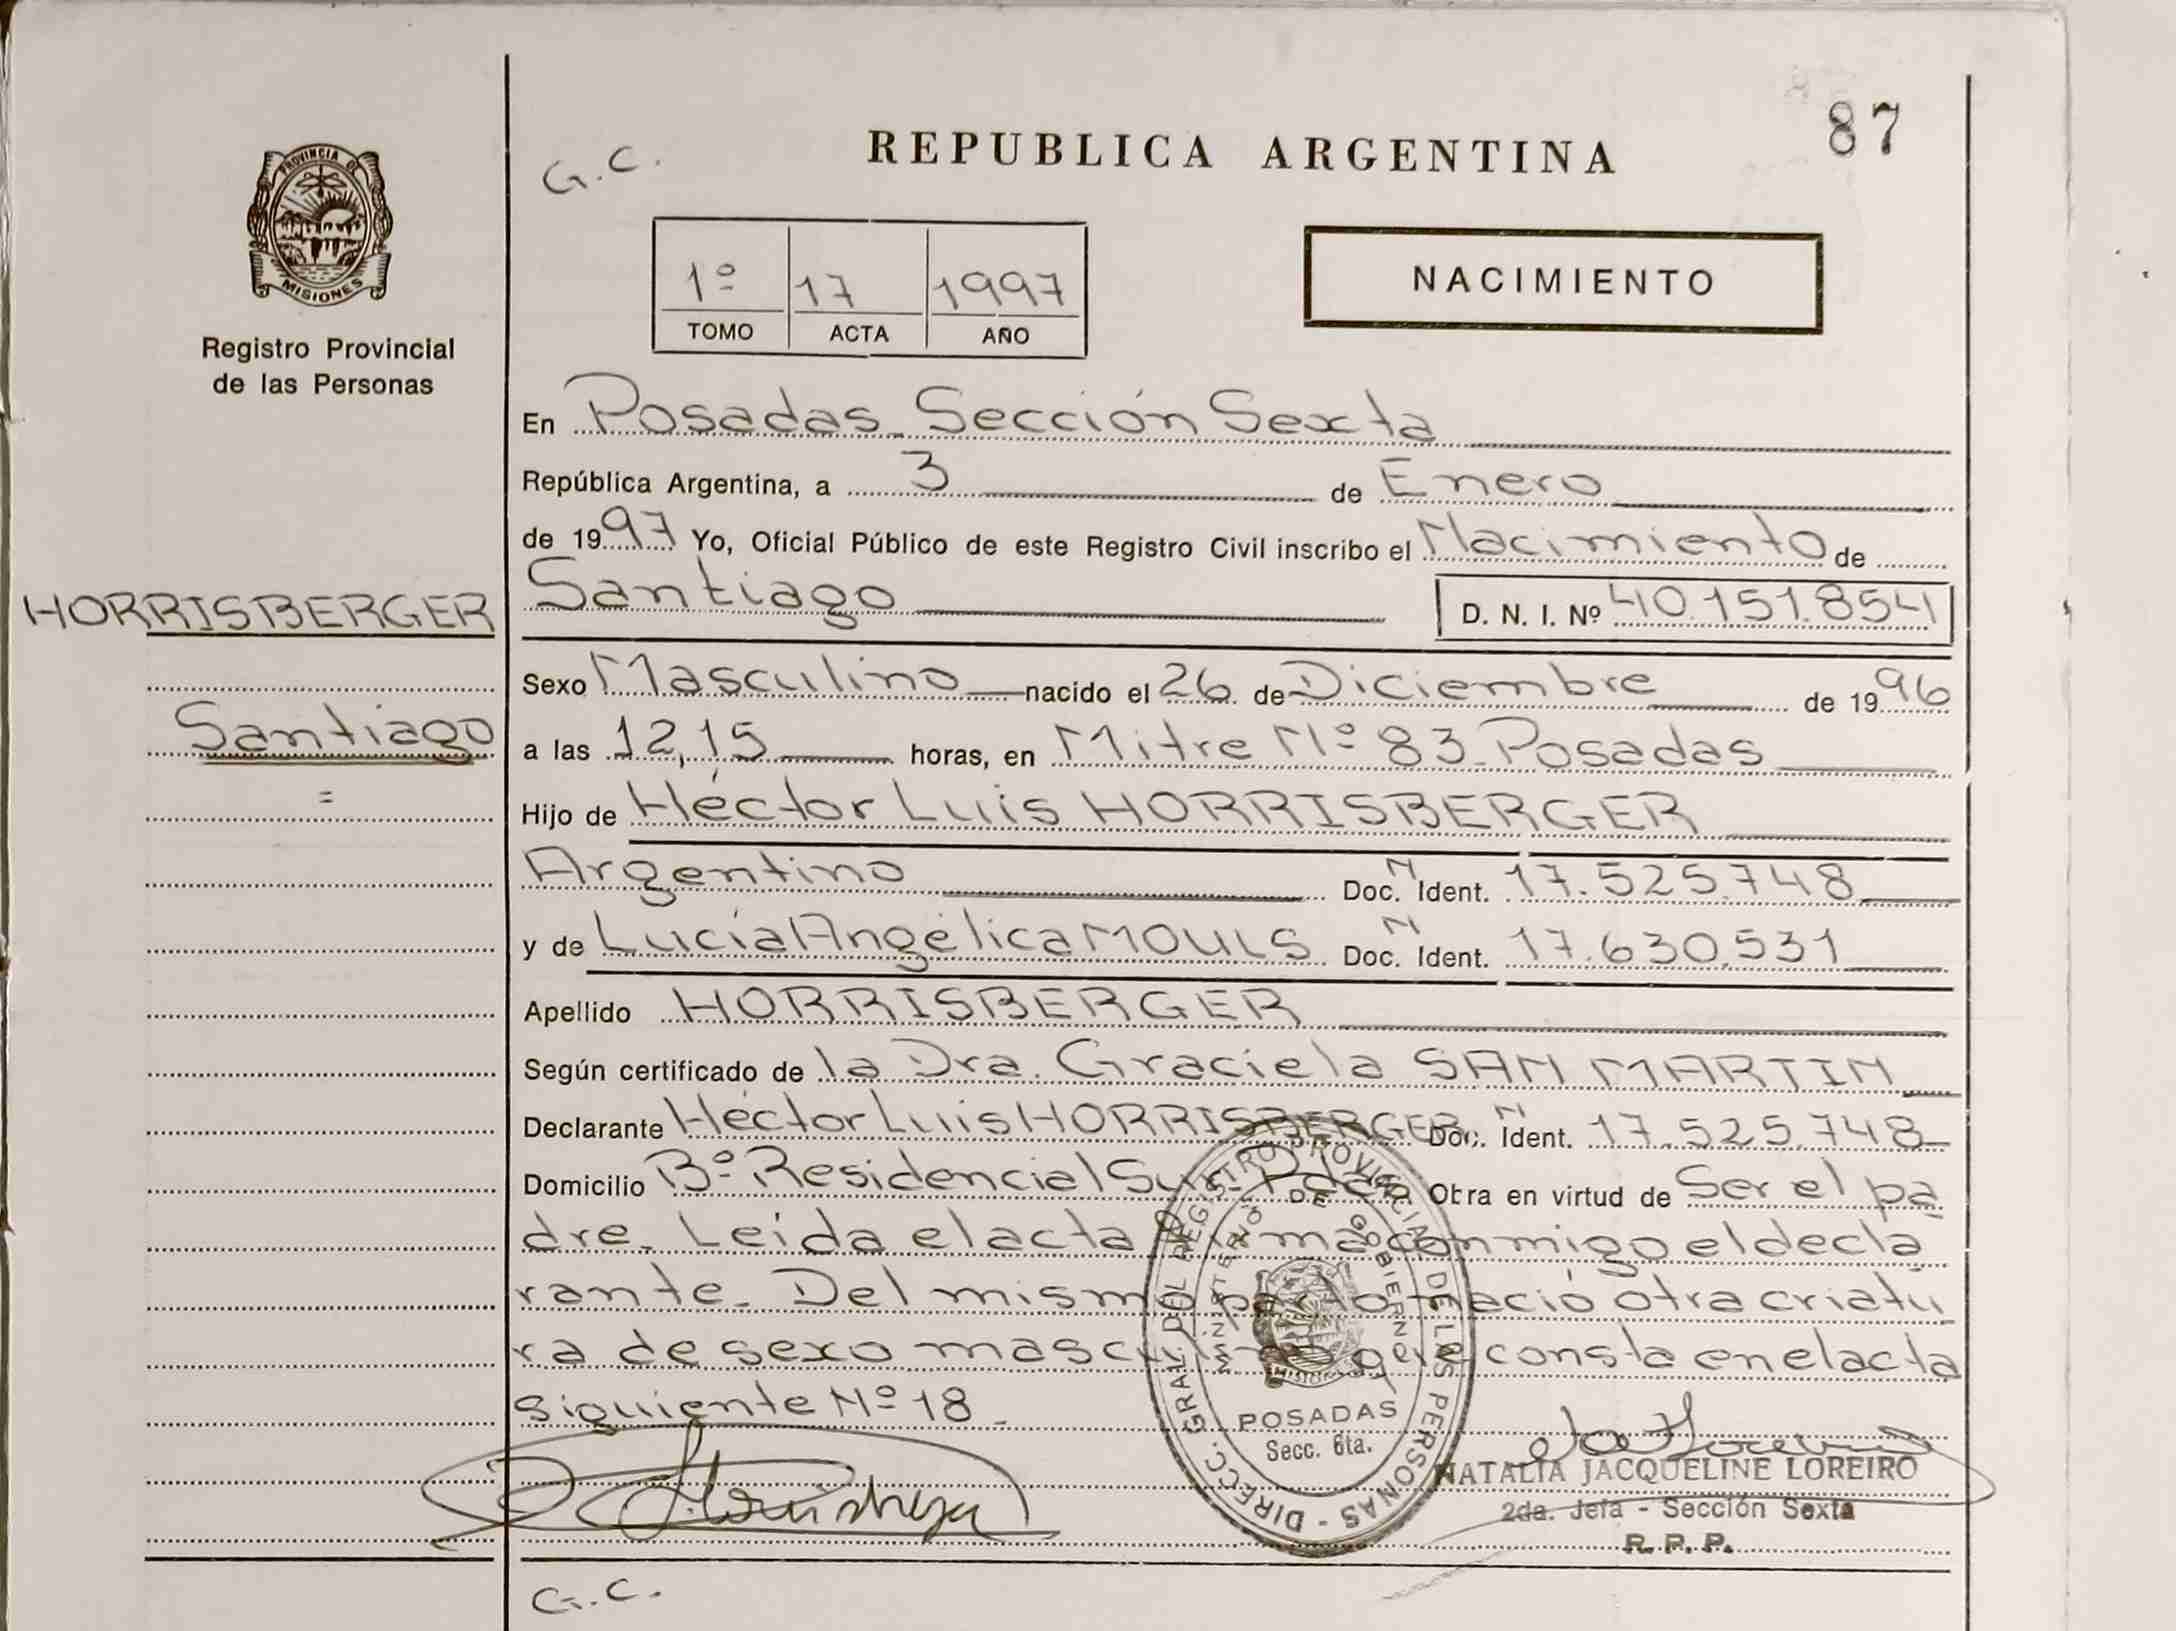 87
REPUBLICA ARGENTINA
G.C.
PROVINCIA DE
MISIONES
Registro Provincial
de las Personas
1º 17 1997
TOMO ACTA AÑO
NACIMIENTO
En Posadas Sección Sexta
República Argentina, a 3 de Enero
de 1997 Yo, Oficial Público de este Registro Civil inscribo el Nacimiento de
HORRISBERGER
Santiago D. N. I. Nº 40.151.854
Sexo Masculino nacido el 26 de Diciembre de 1996
Santiago
=
a las 12,15 horas, en Mitre Nº 83 Posadas
Hijo de Héctor Luis HORRISBERGER
Argentino Doc. N Ident. 17.525.748
y de Lucía Angélica MOULS Doc. N Ident. 17.630.531
Apellido HORRISBERGER
Según certificado de la Dra. Graciela SAN MARTIN
Declarante Héctor Luis HORRISBERGER Doc. N Ident. 17.525.748
Domicilio Bº Residencial Sur Pdas Otra en virtud de Ser el pa
dre. Leida el acta firma conmigo el decla
rante. Del mismo parto nació otra criatu
ra de sexo masculino que consta en el acta
siguiente Nº 18
DIRECC. GRAL. DEL REGISTRO PROVINCIAL DE LAS PERSONAS -
MINISTERIO DE GOBIERNO
MISIONES
POSADAS
Secc. 6ta.
NATALIA JACQUELINE LOREIRO
2da. Jefa - Sección Sexta
R. P. P.
G.C.